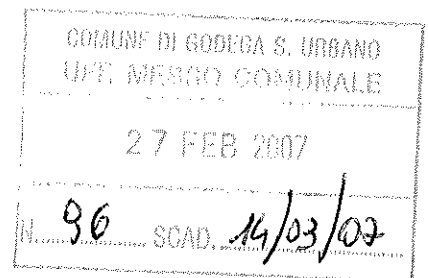 COMUNE DI GODEGA S. URBANO
UFF. MESSO COMUNALE
27 FEB 2007
N. 96 SCAD. 14/03/07